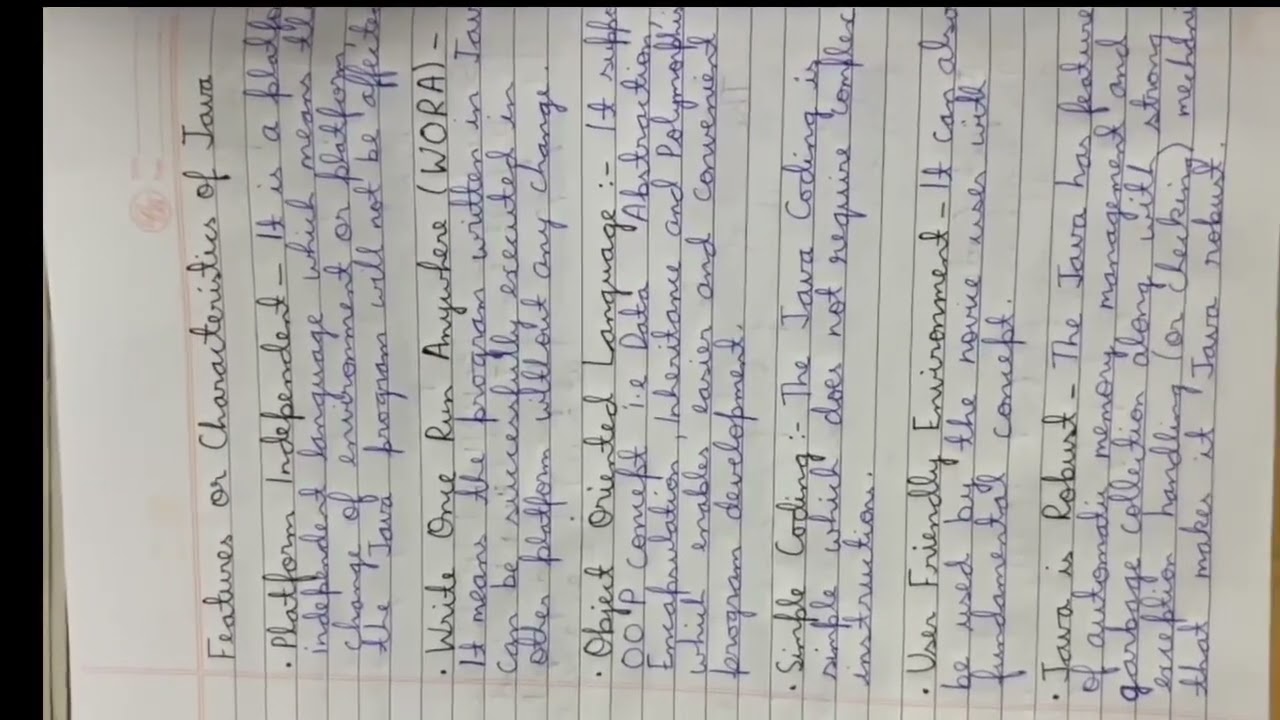 Features or Characteristics of Java
• Platform Independent - It is a platfo
independent language which means the
change of environment or platform,
the Java program will not be affecte
• Write Once Run Anywhere (WORA) -
It means the program written in Jav
can be successfully executed in
other platform without any change.
• Object Oriented Language :- It suppo
OOP concept i.e Data Abstraction,
Encapsulation, Inheritance and Polymophis
which enables easier and convenient
program development.
• Simple Coding :- The Java Coding is
simple which does not require complex
instructions.
• User Friendly Environment - It can also
be used by the novice user with
fundamental concept.
• Java is Robust - The Java has feature
of automatic memory management and
garbage collection along with strong
exception handling (or checking) mechani
that makes it Java robust.